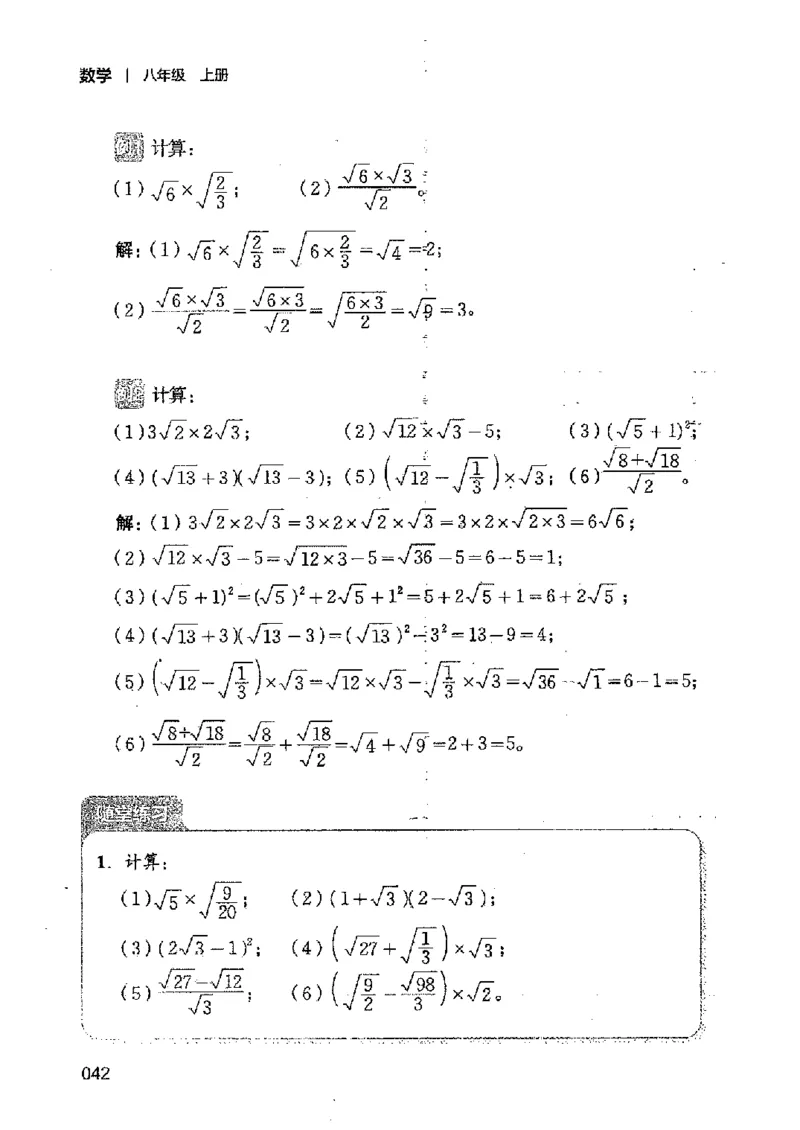 数学 | 八年级 上册
计算:
(1) √6×√(2/3); (2) (√6×√3)/√2。
解: (1) √6×√(2/3)=√(6×2/3)=√4=2;
(2) (√6×√3)/√2=√(6×3)/√2=√((6×3)/2)=√9=3。
计算:
(1)3√2×2√3; (2)√12×√3-5; (3)(√5+1)²;
(4)(√13+3)(√13-3); (5)(√12-√(1/3))×√3; (6)(√8+√18)/√2。
解: (1) 3√2×2√3=3×2×√2×√3=3×2×√(2×3)=6√6;
(2) √12×√3-5=√(12×3)-5=√36-5=6-5=1;
(3) (√5+1)²=(√5)²+2√5+1²=5+2√5+1=6+2√5;
(4) (√13+3)(√13-3)=(√13)²-3²=13-9=4;
(5) (√12-√(1/3))×√3=√12×√3-√(1/3)×√3=√36-√1=6-1=5;
(6) (√8+√18)/√2=√8/√2+√18/√2=√4+√9=2+3=5。
随堂练习
1. 计算:
(1)√5×√(9/20); (2)(1+√3)(2-√3);
(3)(2√3-1)²; (4)(√27+√(1/3))×√3;
(5)(√27-√12)/√3; (6)(√(9/2)-√98/3)×√2。
042